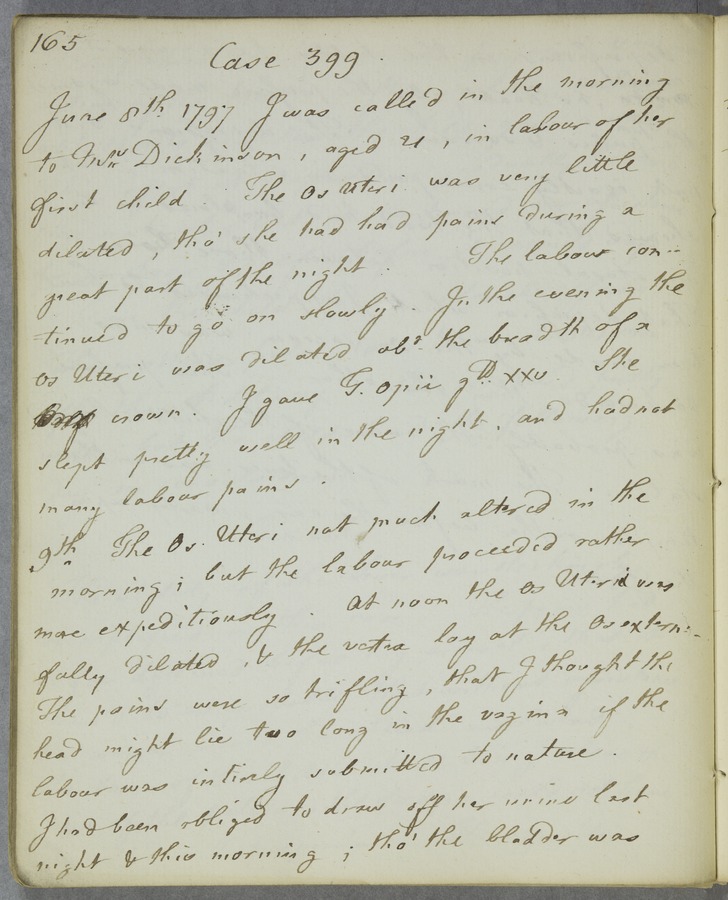 165
Case 399.
June 8th 1797 I was called in the morning
to Mrs Dickinson, aged 21, in labour of her
first child. The Os Uteri was very little
dilated, tho' she had had pains during a
great part of the night. The labour con-
tinued to go on slowly. In the evening the
os Uteri was dilated abt the breadth of a
crown. I gave T. Opii gtt XXV. She
slept pretty well in the night, and had not
many labour pains.
9th The Os Uteri not much altered in the
morning; but the labour proceeded rather
more expeditiously. At noon the Os Uteri was
fully dilated, & the vertex lay at the Os extern:
The pains were so trifling, that I thought the
head might lie too long in the vagina if the
labour was intirely submitted to nature.
I had been obliged to draw off her urine last
night & this morning; tho' the bladder was